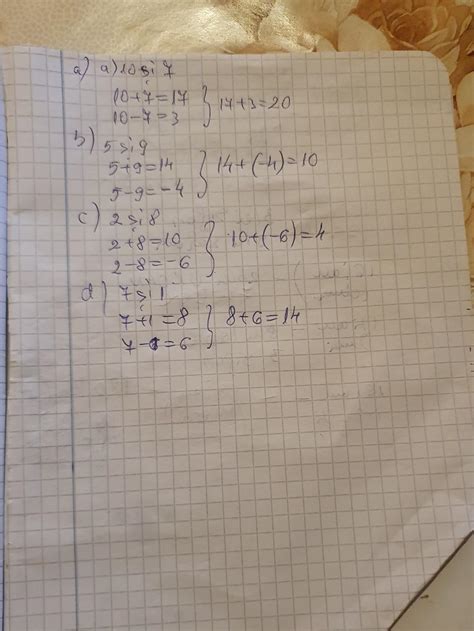 a) a) 10 și 7
10+7=17
10-7=3 } 17+3=20
b) 5 și 9
5+9=14
5-9=-4 } 14+(-4)=10
c) 2 și 8
2+8=10
2-8=-6 } 10+(-6)=4
d) 7 și 1
7+1=8
7-1=6 } 8+6=14